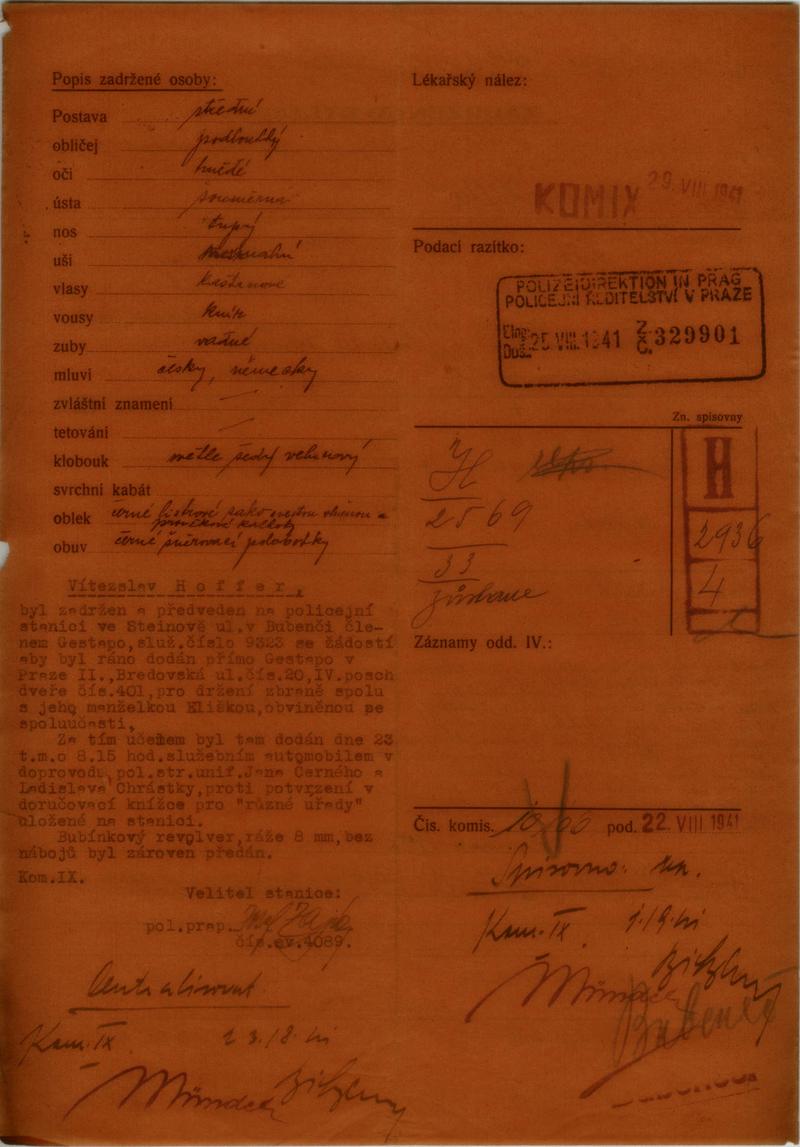 Popis zadržené osoby:
Postava střední
obličej podlouhlý
oči hnědé
ústa souměrná
nos tupý
uši
vlasy kaštanové
vousy knír
zuby vadné
mluví česky, německy
zvláštní znamení —
tetování —
klobouk světle šedý velurový
svrchní kabát
oblek černé listrové sako
kalhoty
obuv černé šněrovací polobotky
Vítězslav Hoffer,
byl zadržen a předveden na policejní
stanici ve Steinově ul.v Bubenči čle-
nem Gestapo,služ.číslo 9323 se žádostí
aby byl ráno dodán přímo Gestapo v
Praze II.,Bredovská ul.čís.20,IV.posch
dveře čís.401,pro držení zbraně spolu
s jeho manželkou Eliškou,obviněnou ze
spoluúčasti,
Za tím účelem byl tam dodán dne 23
t.m.o 8.15 hod.služebním automobilem v
doprovodu pol.str.unif.Jana Černého a
Ladislava Chrástky,proti potvrzení v
doručovací knížce pro "různé úřady"
uložené na stanici.
Bubínkový revolver,ráže 8 mm,bez
nábojů byl zároven předán.
Kom.IX.
Velitel stanice:
pol.prap.
čís.ev.4089.
Centralisovat
Kom. IX
Lékařský nález:
KOMIX 29. VIII. 1941
Podací razítko:
POLIZEIDIREKTION IN PRAG
POLICEJNÍ ŘEDITELSTVÍ V PRAZE
Eing.
Doš.: 25. VIII. 1941 Z. Č. 329901
Zn. spisovny
H
2569
33
H
2936
4
Záznamy odd. IV.:
Čís. komis. pod. 22. VIII 1941
Kom. IX
Bubeneč